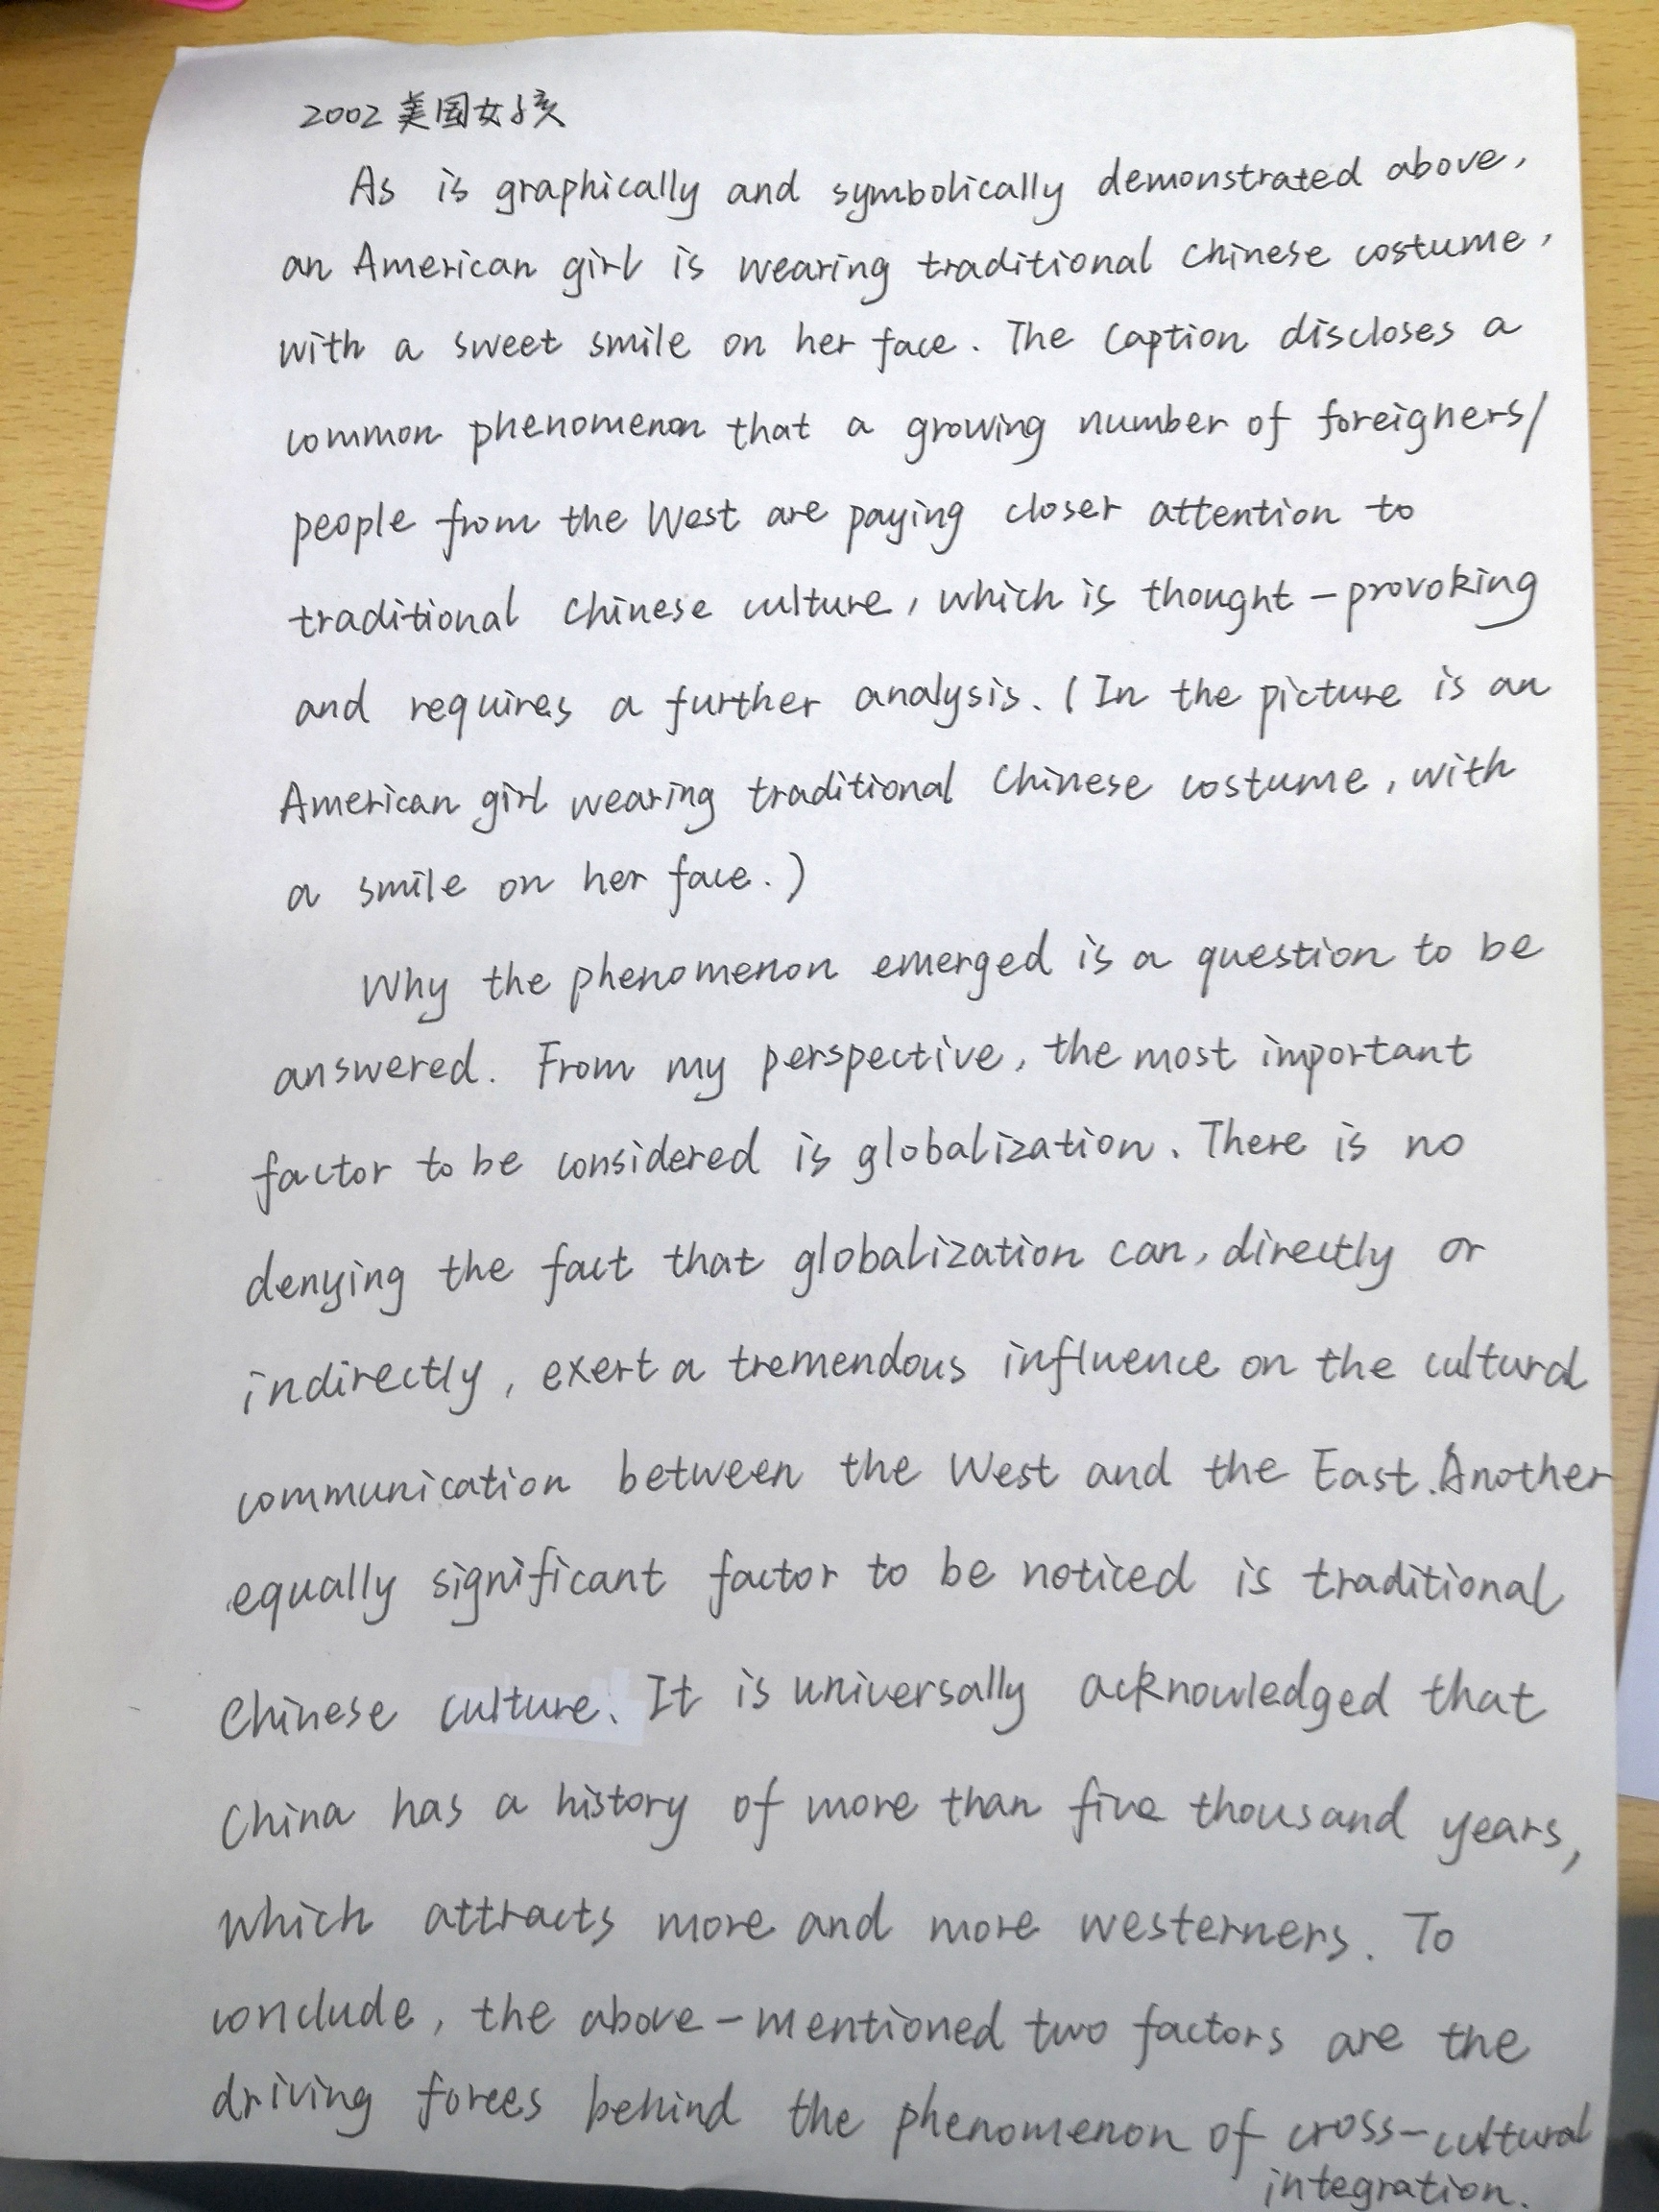 2002 美国女孩
As is graphically and symbolically demonstrated above,
an American girl is wearing traditional Chinese costume,
with a sweet smile on her face. The caption discloses a
common phenomenon that a growing number of foreigners/
people from the West are paying closer attention to
traditional Chinese culture, which is thought-provoking
and requires a further analysis. (In the picture is an
American girl wearing traditional Chinese costume, with
a smile on her face.)
Why the phenomenon emerged is a question to be
answered. From my perspective, the most important
factor to be considered is globalization. There is no
denying the fact that globalization can, directly or
indirectly, exert a tremendous influence on the cultural
communication between the West and the East. Another
equally significant factor to be noticed is traditional
Chinese culture. It is universally acknowledged that
China has a history of more than five thousand years,
which attracts more and more westerners. To
conclude, the above-mentioned two factors are the
driving forces behind the phenomenon of cross-cultural
integration.